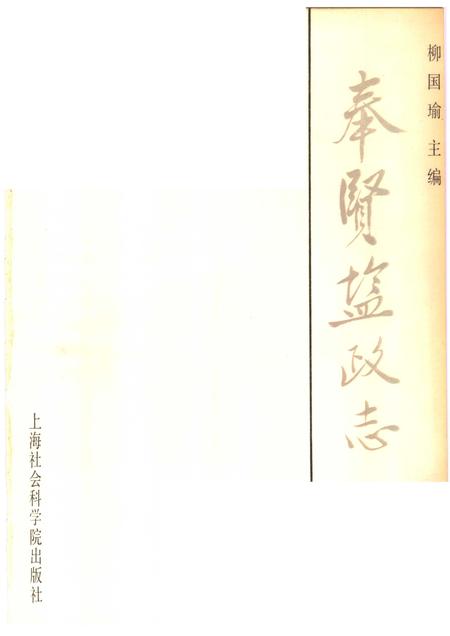 柳国瑜 主编
奉贤盐政志
上海社会科学院出版社